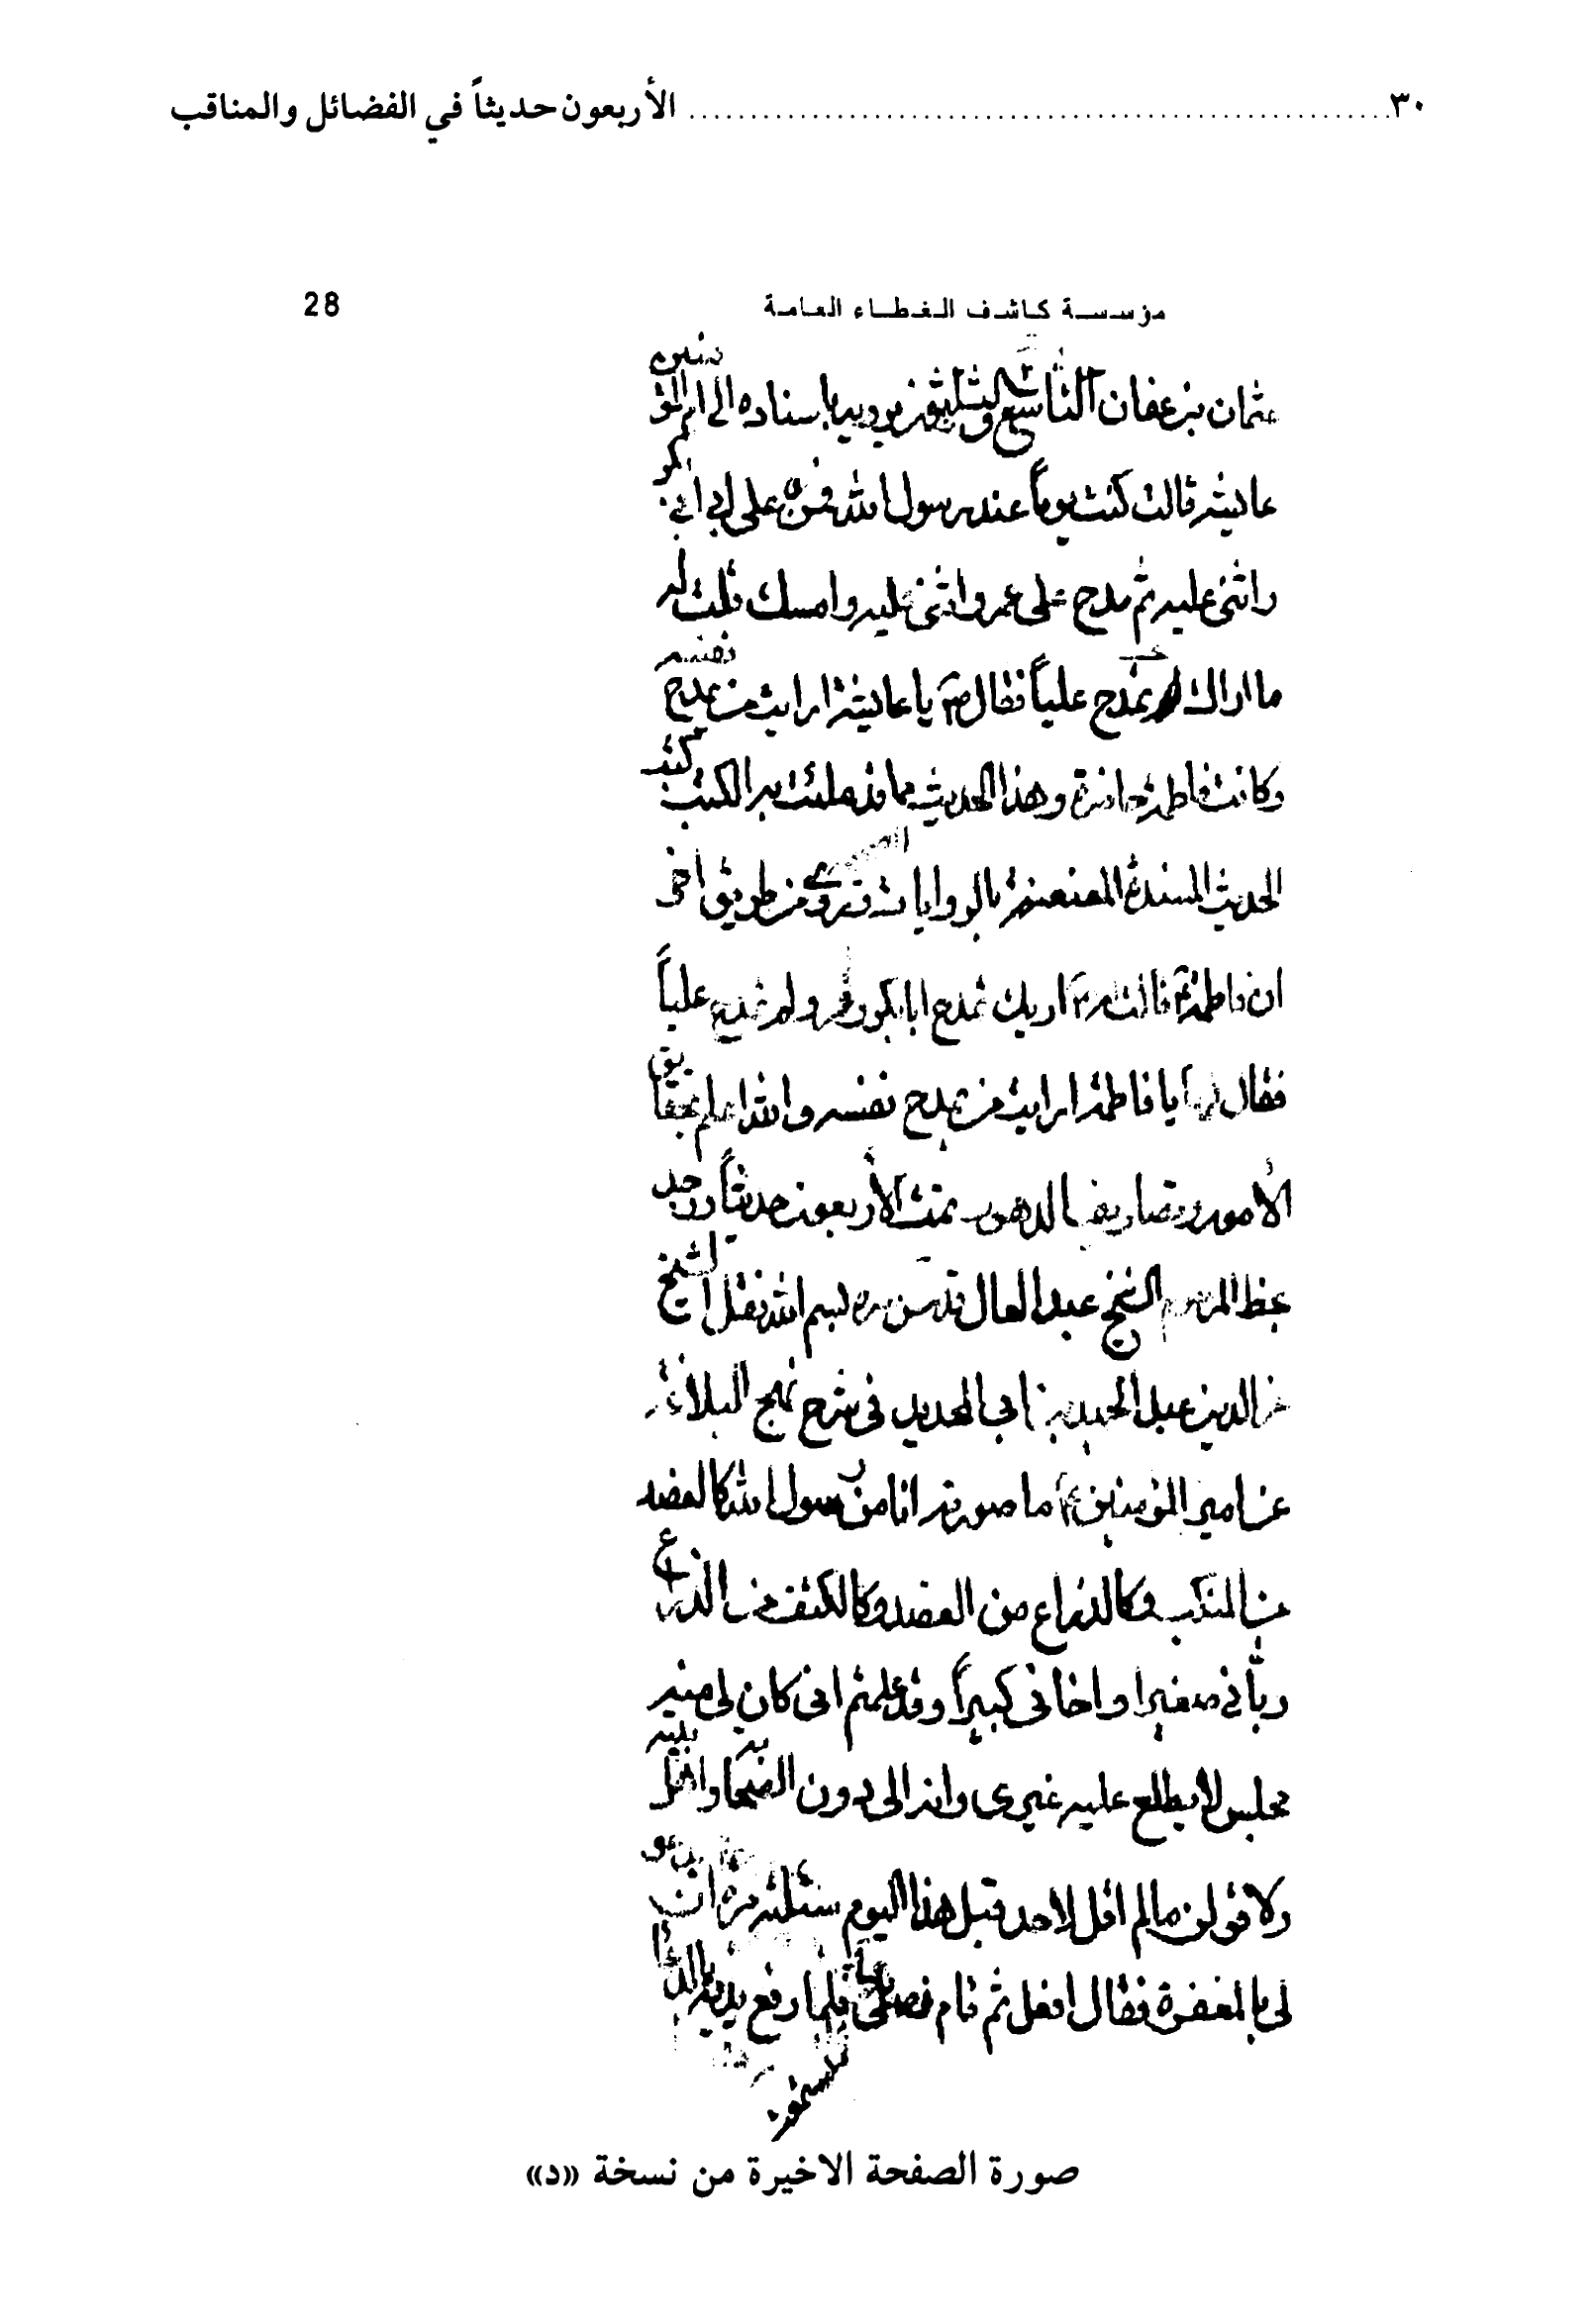 ٣٠ الأربعون حديثاً في الفضائل والمناقب
مؤسسة كاشف الغطاء العامة 28
عثمان بن عفان التاسع والثلثون باسناده الى ام المؤمنين
عايشه قالت كنت يوماً عند رسول الله على ابى
واثنى عليه ثم مدح على عمر واثنى عليه وامسك قلت له
ما اراك تمدح علياً فقال ص يا عايشة ارايت من يمدح نفسه
وكانت فاطمة حاضرة وهذا الحديث مما قد ملئت به الكتب كتب
الحديث المسندة المعنعنة بالروايات من طريق اخرى
ان فاطمة قالت اريك تمدح ابابكر وعمر ولم تمدح علياً
فقال لها يا فاطمة ارايت من يمدح نفسه والله اعلم بحقايق
الأمور وتصاريف الدهور تمت الأربعون حديثاً وجد
بخط المرحوم الشيخ عبد العال قدس سره بسم الله نقل الشيخ
عز الدين عبد الحميد بن ابى الحديد فى شرح نهج البلاغة
عن امير المؤمنين ع ما صورته انا من رسول الله كالعضد
من المنكب وكالذراع من العضد وكالكتف من الذراع
ربّانى صغيرا واخانى كبيراً وقد علمتم انى كان لى منه
مجلس لا يطلع عليه غيرى وانه الى دون الصحابه واهل بيته
ولاقولن مالم اقل لاحد قبل هذا اليوم سئلته مرة ان يدعو
لى بالمغفرة فقال افعل ثم قام فصلى فلما رفع يديه
صورة الصفحة الاخيرة من نسخة «د»